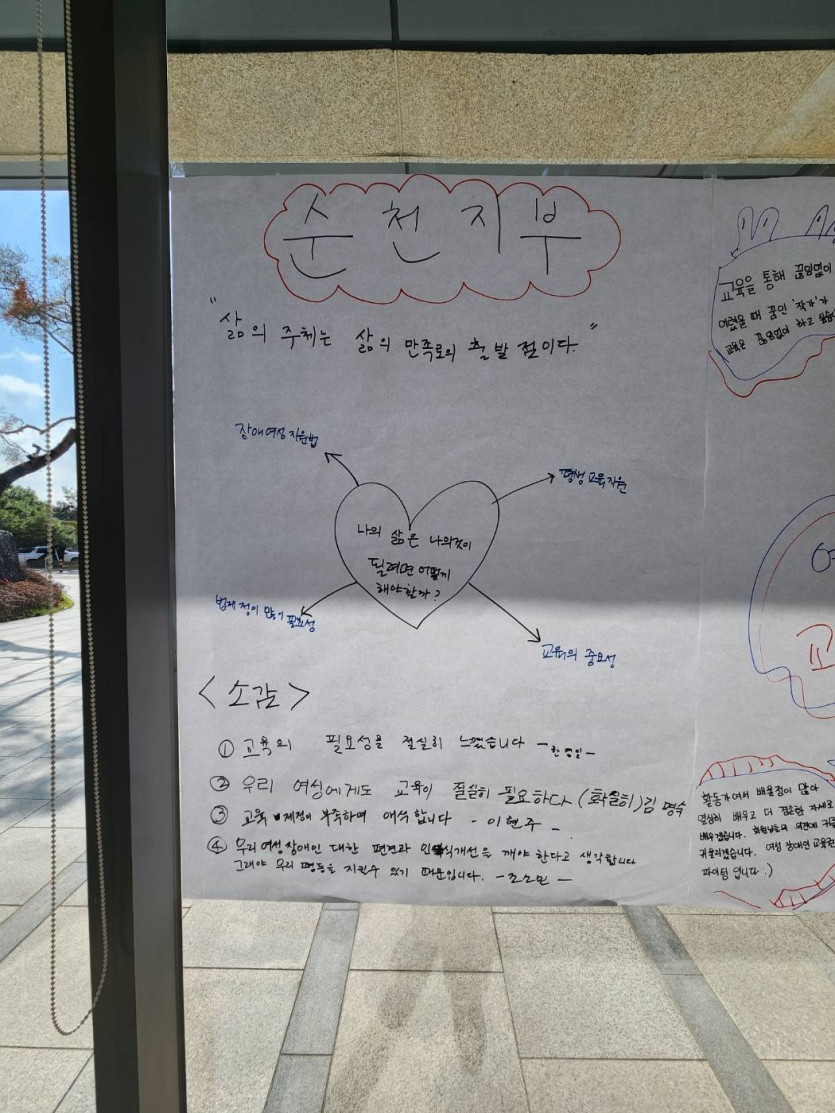 순천지부
"삶의 주체는 삶의 만족도의 출발점이다."
장애여성지원법
평생교육지원
나의 삶은 나의것이
될려면 어떻게
해야할까?
법제정이 많이 필요성
교육의 중요성
<소감>
① 교육의 필요성을 절실히 느꼈습니다
② 우리 여성에게도 교육이 절실히 필요하다 (확실히) 김명숙
③ 교육 부족하며 애석합니다 - 이현주 -
④ 우리여성장애인 대한 편견과 인식개선을 깨야 한다고 생각합니다
그래야 우리 평등을 지킬수 있기 때문입니다. - 조소민 -
교육을 통해 끊임없이
어렸을 때 꿈인 '작가'가
교육은 끊임없이 하고
여
교
활동가여서 배울점이 많아
열심히 배우고 더 겸손한 자세로
배우겠습니다. 회원님들의 의견에 귀를
귀 기울리겠습니다. 여성 장애인 교육권
파이팅 입니다 :)